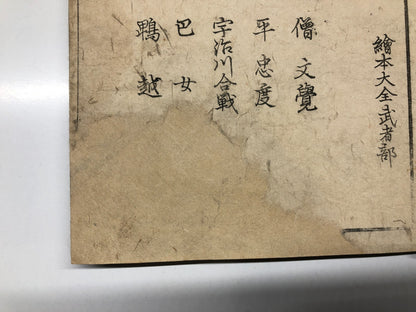 繪本大全武者部
僧文覺
平忠度
宇治川合戰
巴女
鵯越